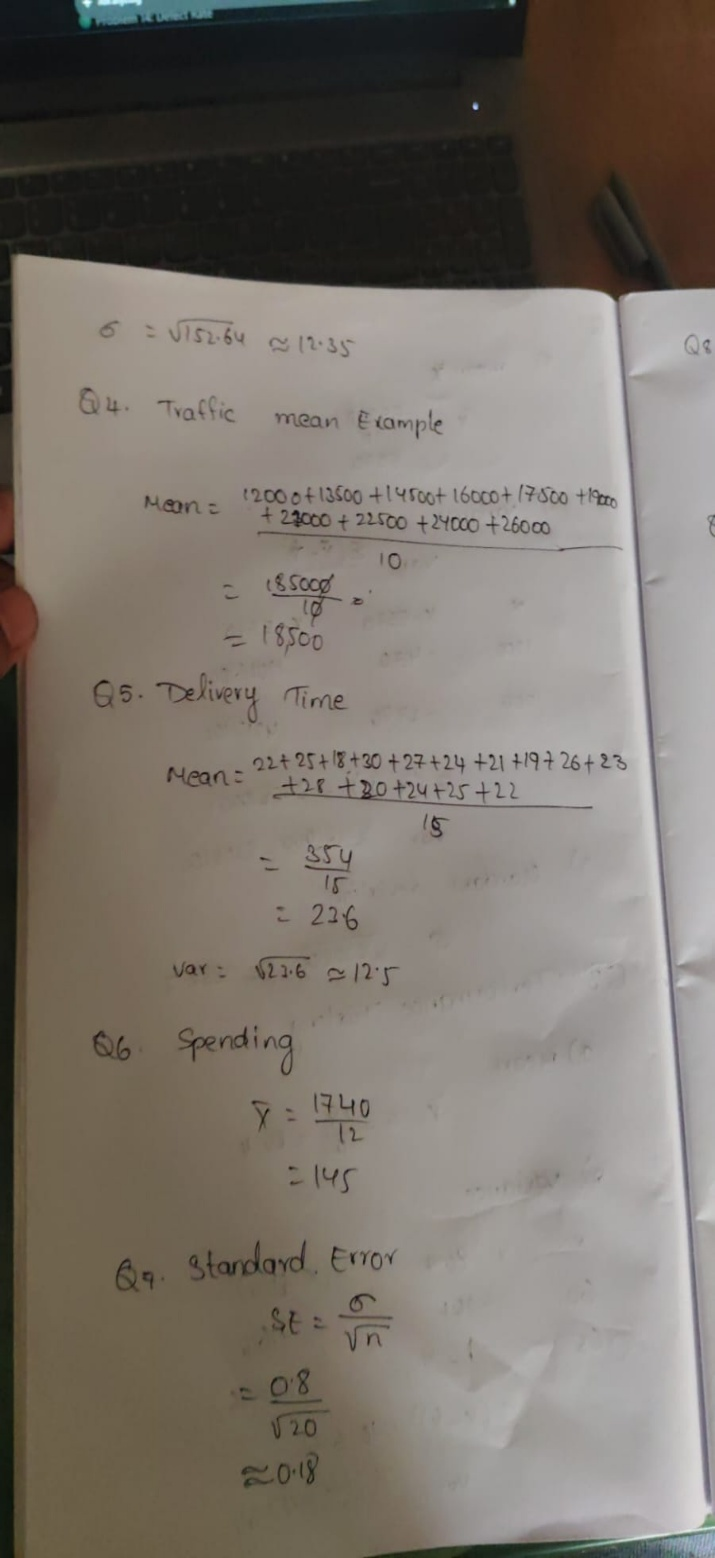 σ = √152.64 ≈ 12.35
Q8
Q4. Traffic mean Example
Mean = 12000+13500+14500+16000+17500+19000
+22000+22500+24000+26000
10
= 185000
10
= 18,500
Q5. Delivery Time
Mean = 22+25+18+30+27+24+21+19+26+23
+28+20+24+25+22
15
= 354
15
= 23.6
Var = √23.6 ≈ 12.5
Q6. Spending
x̄ = 1740
12
= 145
Q7. Standard Error
SE = σ
√n
= 0.8
√20
≈ 0.18